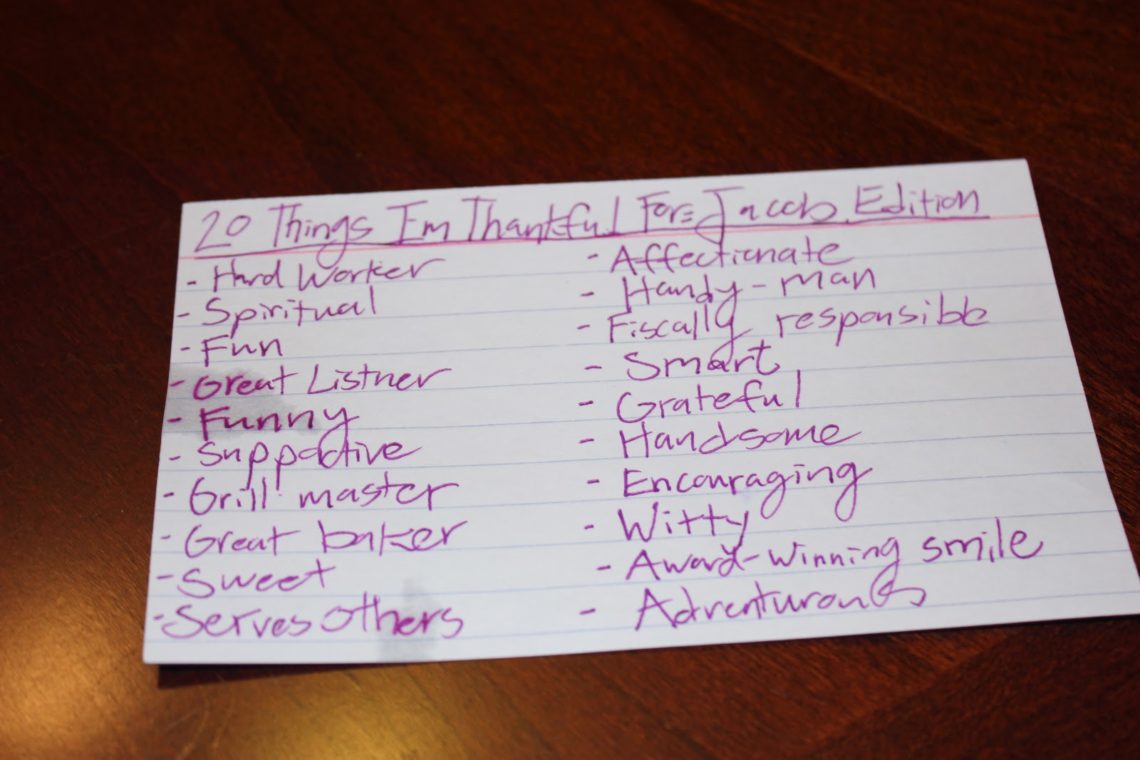 20 Things Im Thankful For: Jacob Edition
- Hard Worker
- Spiritual
- Fun
- Great Listner
- Funny
- Suppoctive
- Grill master
- Great baker
- Sweet
- Serves Others
- Affectionate
- Handy-man
- Fiscally responsible
- Smart
- Grateful
- Handsome
- Encouraging
- Witty
- Award-winning smile
- Adventurous